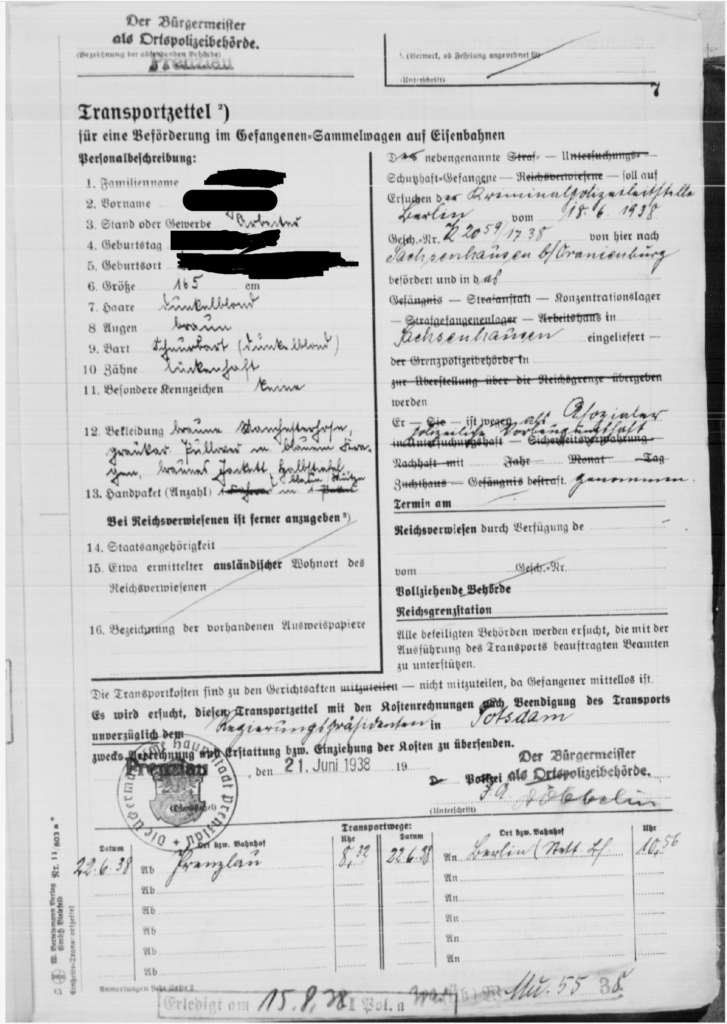 Der Bürgermeister
als Ortspolizeibehörde.
(Bezeichnung der absendenden Behörde)
Prenzlau
(Vermerk, ob Fesselung angeordnet ist)
(Unterschrift)
7
Transportzettel ²)
für eine Beförderung im Gefangenen-Sammelwagen auf Eisenbahnen
Personalbeschreibung:
1. Familienname
2. Vorname
3. Stand oder Gewerbe Arbeiter
4. Geburtstag
5. Geburtsort
6. Größe 165 cm
7. Haare dunkelblond
8 Augen braun
9. Bart Schnurbart (dunkelblond)
10 Zähne lückenhaft
11. Besondere Kennzeichen keine
12. Bekleidung braune Manchesterhose,
grauer Pullover m blauem Kra-
gen, braunes Jackett, Halbstiefel,
blaue Mütze
13. Handpaket (Anzahl)
Bei Reichsverwiesenen ist ferner anzugeben ³)
14. Staatsangehörigkeit
15. Etwa ermittelter ausländischer Wohnort des
Reichsverwiesenen
16. Bezeichnung der vorhandenen Ausweispapiere
Der nebengenannte Straf- — Untersuchungs-
Schutzhaft-Gefangene — Reichsverwiesene — soll auf
Ersuchen der Kriminalpolizeileitstelle
Berlin vom 18.6.1938
Gesch.-Nr. K 2059/17 38 von hier nach
Sachsenhausen b/Oranienburg
befördert und in das
Gefängnis — Strafanstalt — Konzentrationslager
— Strafgefangenenlager — Arbeitshaus in
Sachsenhausen eingeliefert —
der Grenzpolizeibehörde in
zur Überstellung über die Reichsgrenze übergeben
werden
Er — Sie — ist wegen als Asozialer
polizeiliche Vorbeugungshaft
in Untersuchungshaft — Sicherheitsverwahrung
Nachhaft mit Jahr Monat Tag
Zuchthaus — Gefängnis bestraft. genommen.
Termin am
Reichsverwiesen durch Verfügung de
vom Gesch.-Nr.
Vollziehende Behörde
Reichsgrenzstation
Alle beteiligten Behörden werden ersucht, die mit der
Ausführung des Transports beauftragten Beamten
zu unterstützen.
Die Transportkosten sind zu den Gerichtsakten mitzuteilen — nicht mitzuteilen, da Gefangener mittellos ist.
Es wird ersucht, diesen Transportzettel mit den Kostenrechnungen nach Beendigung des Transports
unverzüglich dem Regierungspräsidenten in Potsdam
zwecks Berechnung und Erstattung bzw. Einziehung der Kosten zu übersenden.
Prenzlau, den 21. Juni 1938 19
Die Uckermärkische Hauptstadt Prenzlau
(Dienstsiegel)
Der Bürgermeister
Polizei als Ortspolizeibehörde.
J. A.
(Unterschrift)
Transportwege:
Datum Ort bzw. Bahnhof Uhr Datum Ort bzw. Bahnhof Uhr
22.6.38 Ab Prenzlau 8,32 22.6.38 An Berlin (Stett. Bf 10,56
Ab An
Ab An
Ab An
Ab An
Ab An
Anmerkungen siehe Seite 2
W. Bertelsmann Verlag
GmbH Bielefeld
Nr. 11/803 a*
Einheits-Transportzettel
Erledigt am 15.8.38 Pol. a
Mu. 55 38.